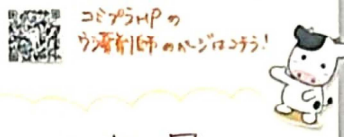 コミプラHPの
ウシ薬剤師のページはコチラ!